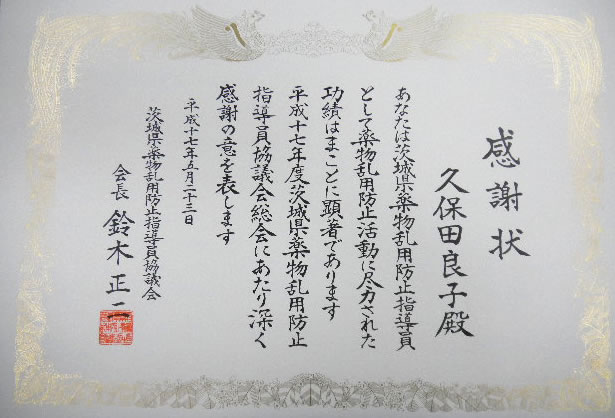 感謝状
久保田良子殿
あなたは茨城県薬物乱用防止指導員
として薬物乱用防止活動に尽力された
功績はまことに顕著であります
平成十七年度茨城県薬物乱用防止
指導員協議会総会にあたり深く
感謝の意を表します
平成十七年五月二十三日
茨城県薬物乱用防止指導員協議会
会長 鈴木正二